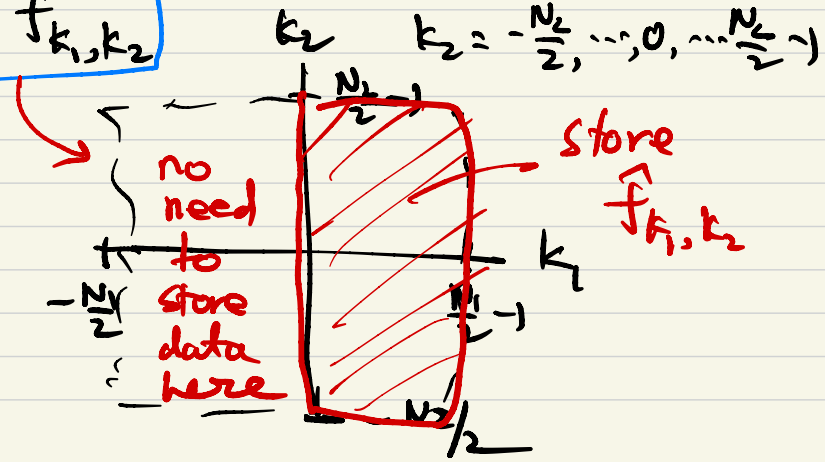 f_{k_1,k_2}
k_2
k_2 = -N_2/2, ..., 0, ... N_2/2 -1
N_2/2 -1
store
f̂_{k_1,k_2}
no
need
to
store
data
here
k_1
-N_1/2
N_1/2 -1
-N_2/2